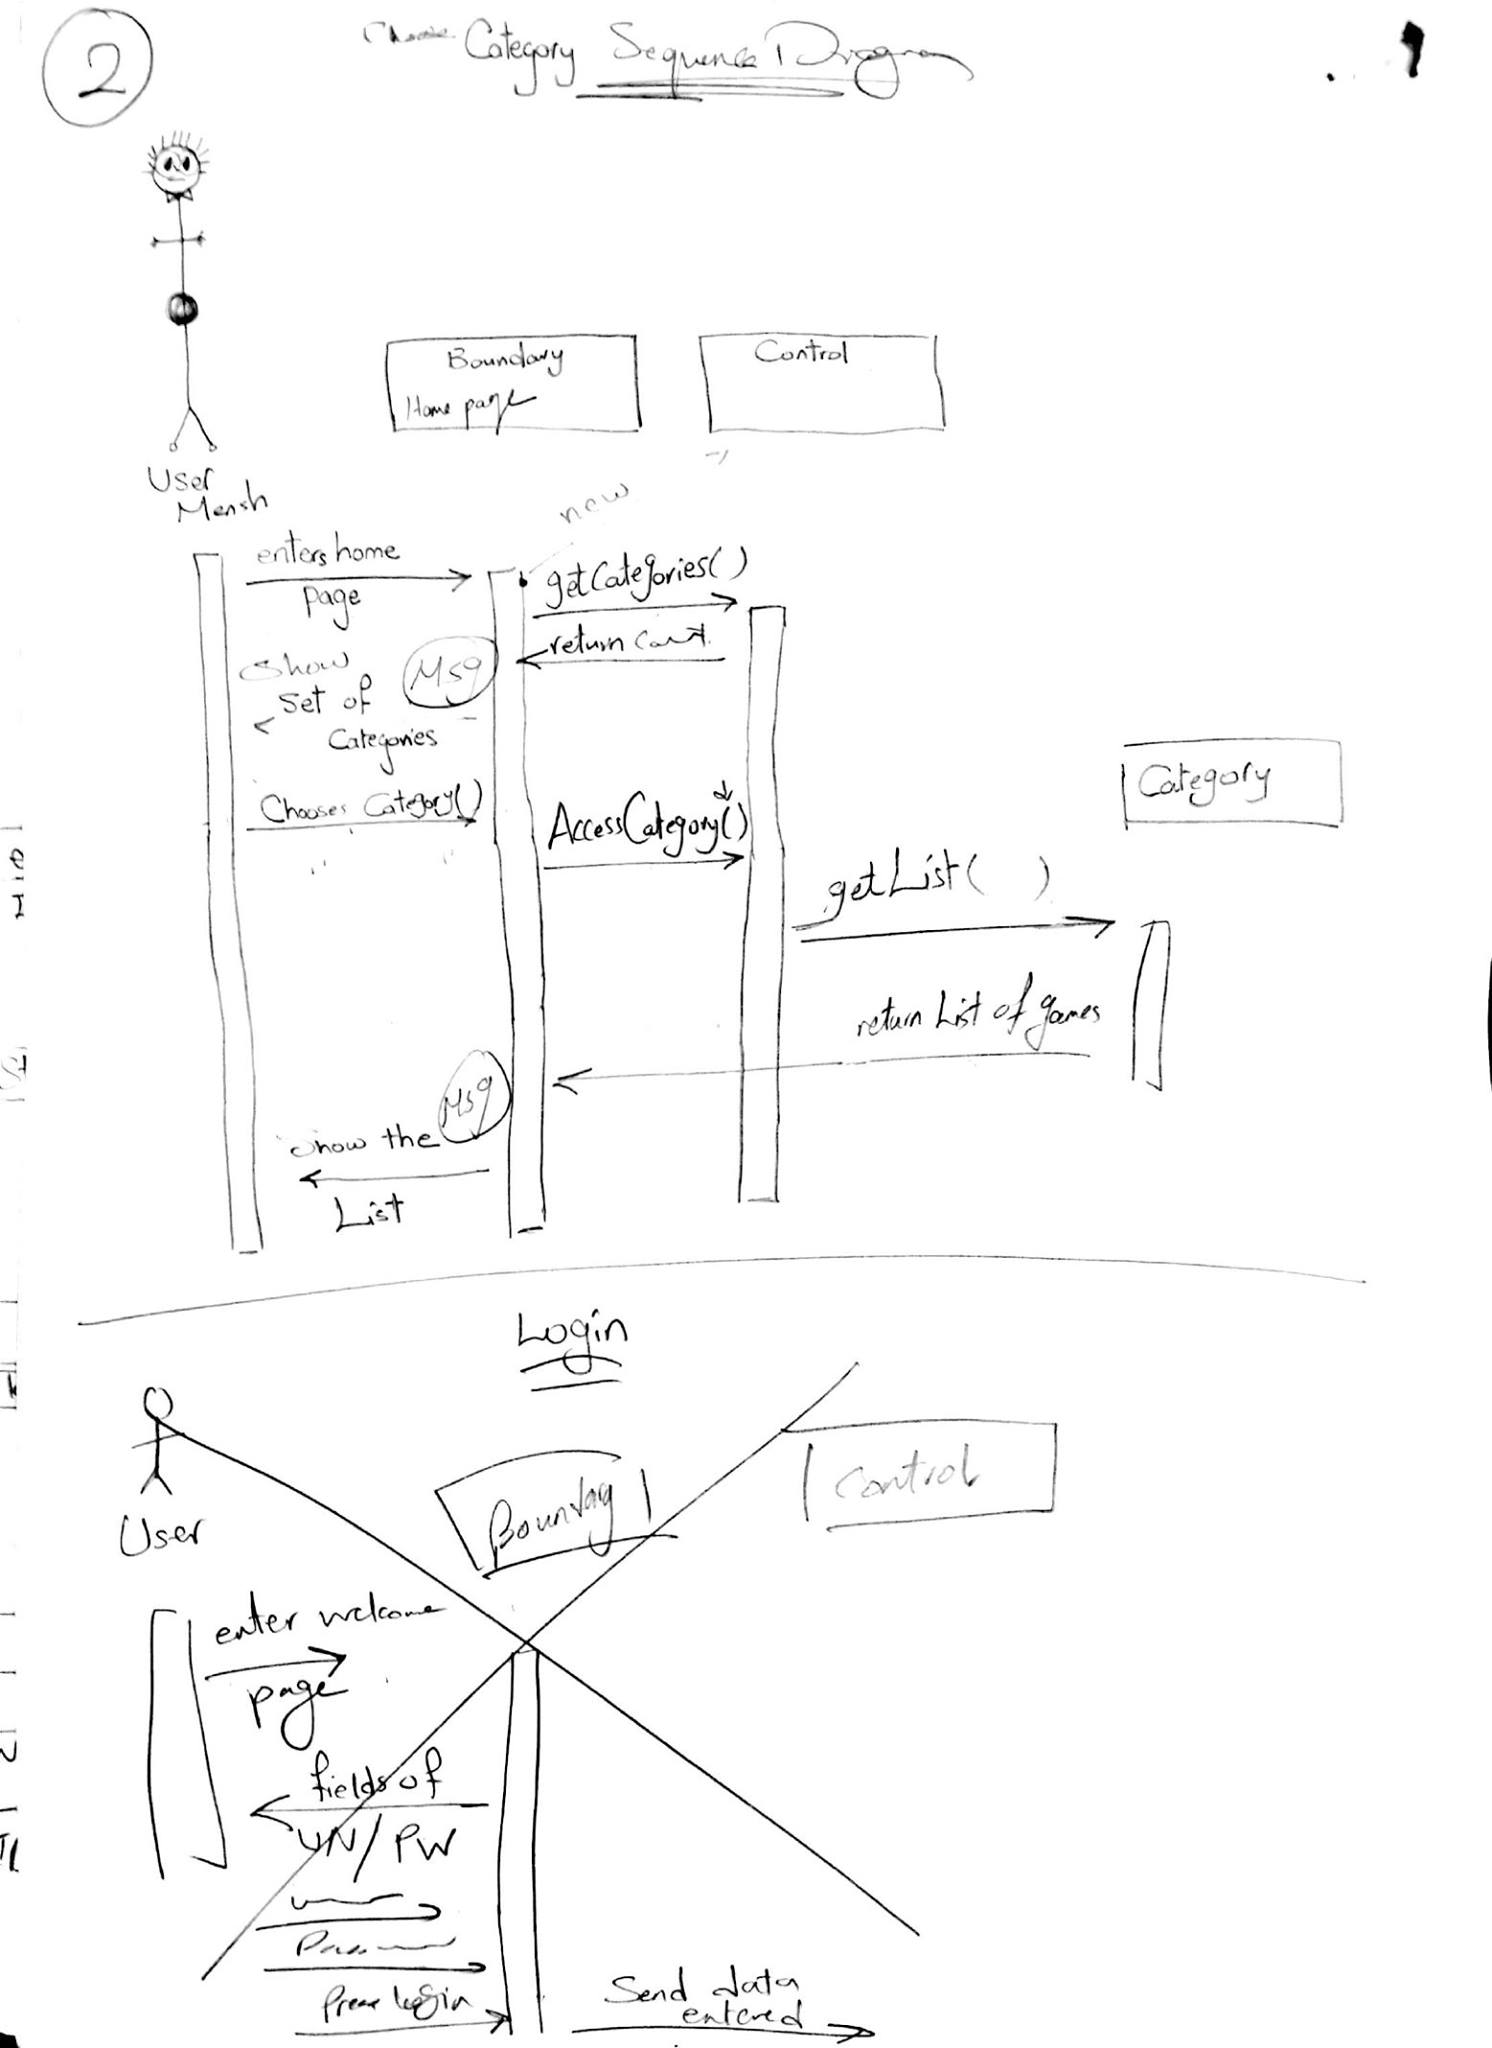 2
Choose Category Sequence Diagram
Boundary
Home page
Control
User
Mensh
new
enters home
page
getCategories()
return cat.
Show
set of
Categories
Msg
Category
Chooses Category()
AccessCategory()
getList( )
return List of games
Msg
show the
List
Login
User
Boundary
Control
enter welcome
page
fields of
UN/PW
Press login
Send data
entered